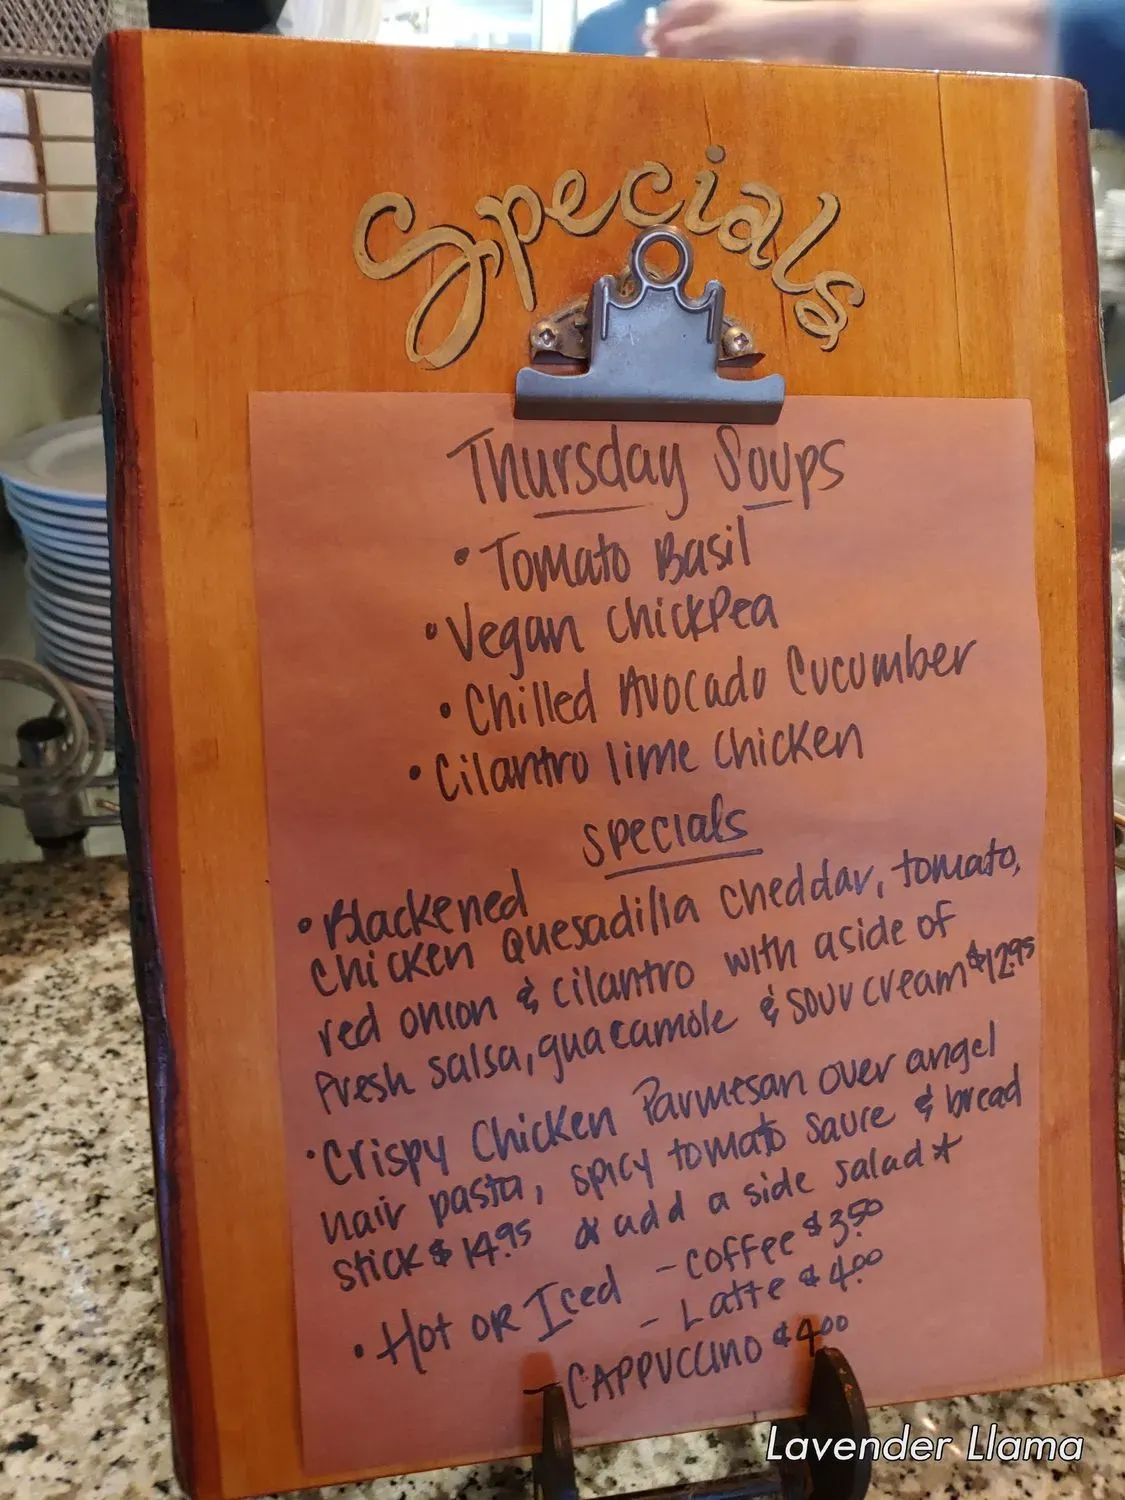 Specials
Thursday Soups
• Tomato Basil
• Vegan chickPea
• Chilled Avocado Cucumber
• Cilantro lime chicken
specials
• Blackened
chicken Quesadilla cheddar, tomato,
red onion & cilantro with a side of
fresh salsa, guacamole & sour cream $12.95
• Crispy Chicken Parmesan over angel
hair pasta, spicy tomato sauce & bread
stick $14.95 * add a side salad *
• Hot OR Iced - coffee $3.50
- Latte $4.00
- CAPPUCCINO $4.00
Lavender Llama